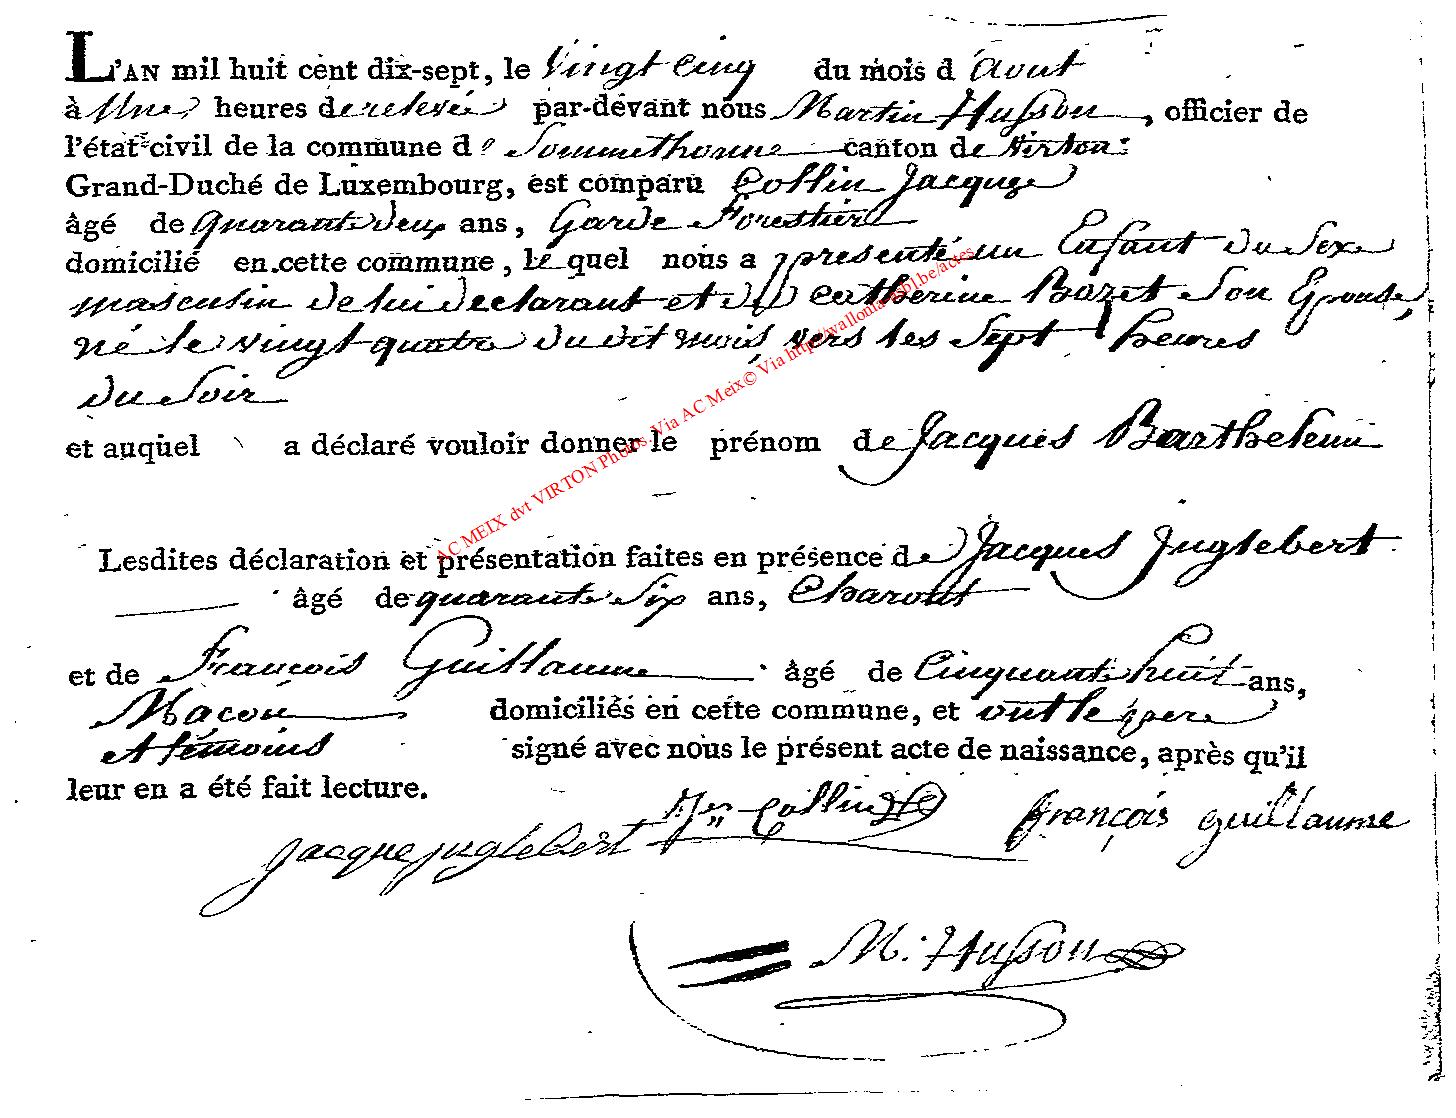 L'AN mil huit cent dix-sept, le vingt cinq du mois d'Aout
à Une heures de relevée par-devant nous Martin Husson, officier de
l'état civil de la commune de Sommethonne canton de Virton
Grand-Duché de Luxembourg, est comparu Collin Jacque
âgé de quarante deux ans, Garde Forestier
domicilié en cette commune, le quel nous a présenté un Enfant du Sexe
masculin de lui declarant et de Catherine Bozet Son Epouse,
né le vingt quatre du dit mois, vers les Sept heures
du Soir
et auquel a déclaré vouloir donner le prénom de Jacques Barthelemi
AC MEIX dvt VIRTON Photos. Via AC Meix© Via http://wallonia-asbl.be/actes
Lesdites déclaration et présentation faites en présence de Jacques Juglebert
âgé de quarante Six ans, Charont
et de François Guillaume âgé de Cinquante huit ans,
Maçon domiciliés en cette commune, et ont le pere
et temoins signé avec nous le présent acte de naissance, après qu'il
leur en a été fait lecture.
Collin françois guillaume
Jacque juglebert
M. Husson